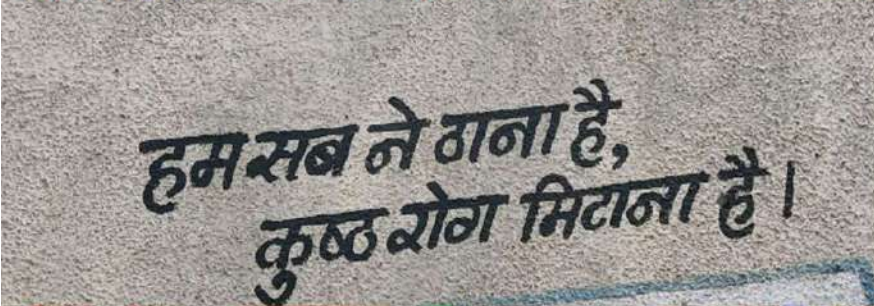 हम सब ने ठाना है,
कुष्ठ रोग मिटाना है।